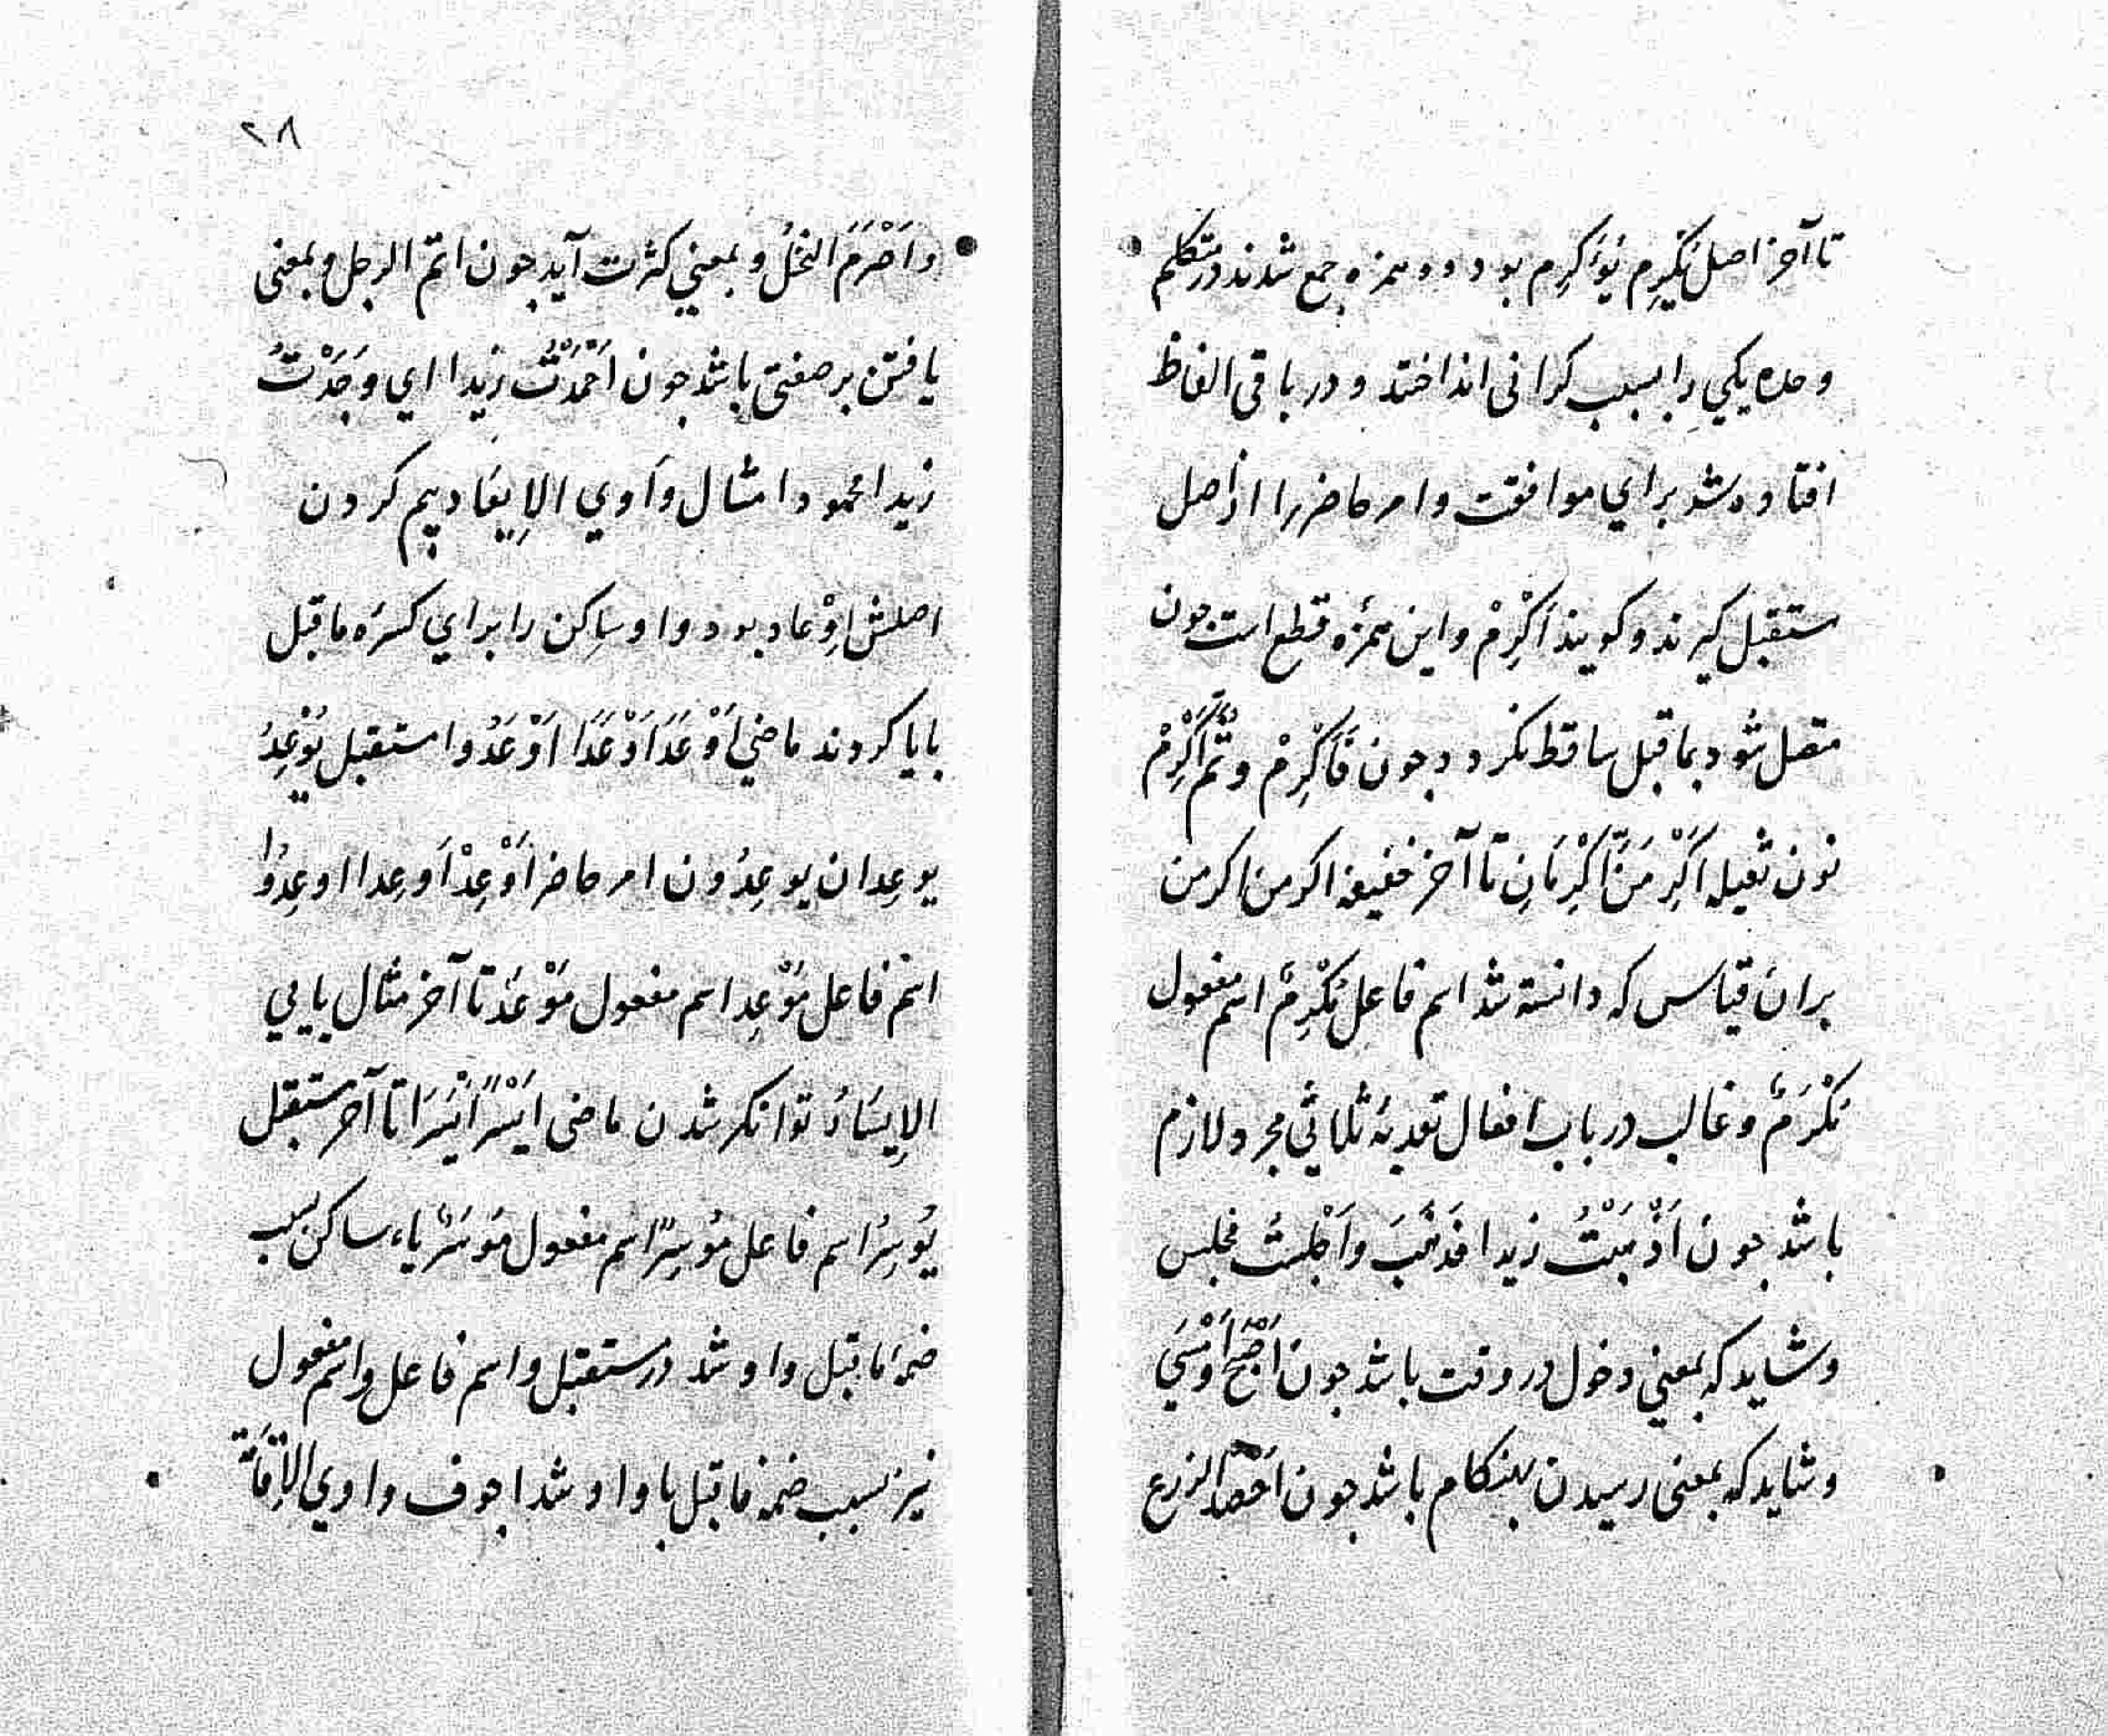 تا آخر اصل یُکْرِم یُؤَکرِم بود دو همزه جمع شدند در متکلم
وحده یکي را بسبب کرانی انداختند و در باقی الفاظ
افتاده شد براي موافقت وامر حاضر را از اصل
مستقبل کیرند وکویند اَکْرِمْ واین همزه قطع است جون
متصل شود بماقبل ساقط نکردد جون فَاَکْرِمْ وثُمَّ اَکْرِمْ
نون ثقیله اَکْرِمَنَّ اَکْرِمَانِّ تا آخر خفیفه اکرمن اکرمن
بران قیاس که دانسته شد اسم فاعل مُکْرِمٌ اسم مفعول
مُکْرَمٌ وغالب در باب افعال تعدیهٔ ثلاثي مجرد لازم
باشد جون اَذْهَبْتُ زیدا فَذَهَبَ واَجْلَسْتُ فجلس
وشاید که بمعني دخول در وقت باشد جون اَصْبَحَ اَوْ اَمْسَي
وشاید که بمعنی رسیدن بهنکام باشد جون اَحْصَدَ الزرع
۲۸
واَصْرَمَ النخلُ و بمعني کثرت آید جون اتمّ الرجل وبمعنی
یافتن بر صفتی باشد جون اَحْمَدْتُ زیدا اي وَجَدْتُ
زیدا محمودا مثال واوي الاِیعَاد بیم کردن
اصلش اِوْعاد بود واو ساکن را براي کسره ماقبل
بایا کردند ماضي اَوْعَدَ اَوْعَدَا اَوْعَدُوا مستقبل یُوْعِدُ
یوعِدان یوعِدُون امر حاضر اَوْعِدْ اَوعِدا اوعِدُوا
اسم فاعل مُوْعِد اسم مفعول مُوْعَدٌ تا آخر مثال یایي
الاِیسَارُ توانکر شدن ماضی اَیْسَرَ اَیْسَرَا تا آخر مستقبل
یُوسِرُ اسم فاعل مُوسِرٌ اسم مفعول مُوسَرٌ یاء ساکن بسبب
ضمهٔ ماقبل واو شد در مستقبل واسم فاعل واسم مفعول
نیز بسبب ضمه ماقبل یا واو شد اجوف واوي الاِقَامَة